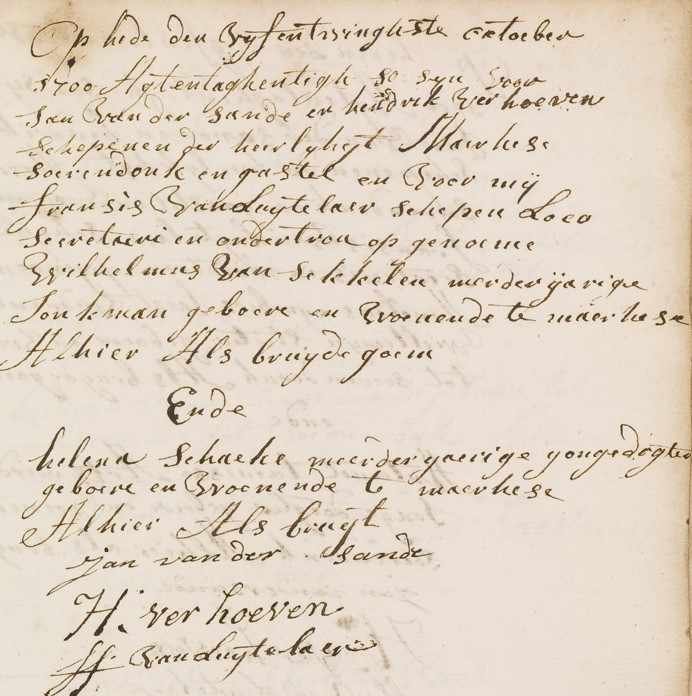 Op hede den Vyfentwinghste october
1700 Agtentaghentigh so syn voor
Jan Van der Sande en hendrik Verhoeven
Schepenen der heerlyhyt Maerhese
soerendonk en gastel en Voor mij
fransis VanLuytelaer schepen Loco
secretaeri en ondertrou op genome
Wilhelmus Van Sekkelen meerderyarige
Jonkman geboere en Woenende te maerhese
Alhier Als bruydegoem
Ende
helena Schaeke meerderyaerige yongedogter
geboere en Woenende te maerhese
Alhier Als bruyt
Jan van der sande
H. verhoeven
ff VanLuytelaer